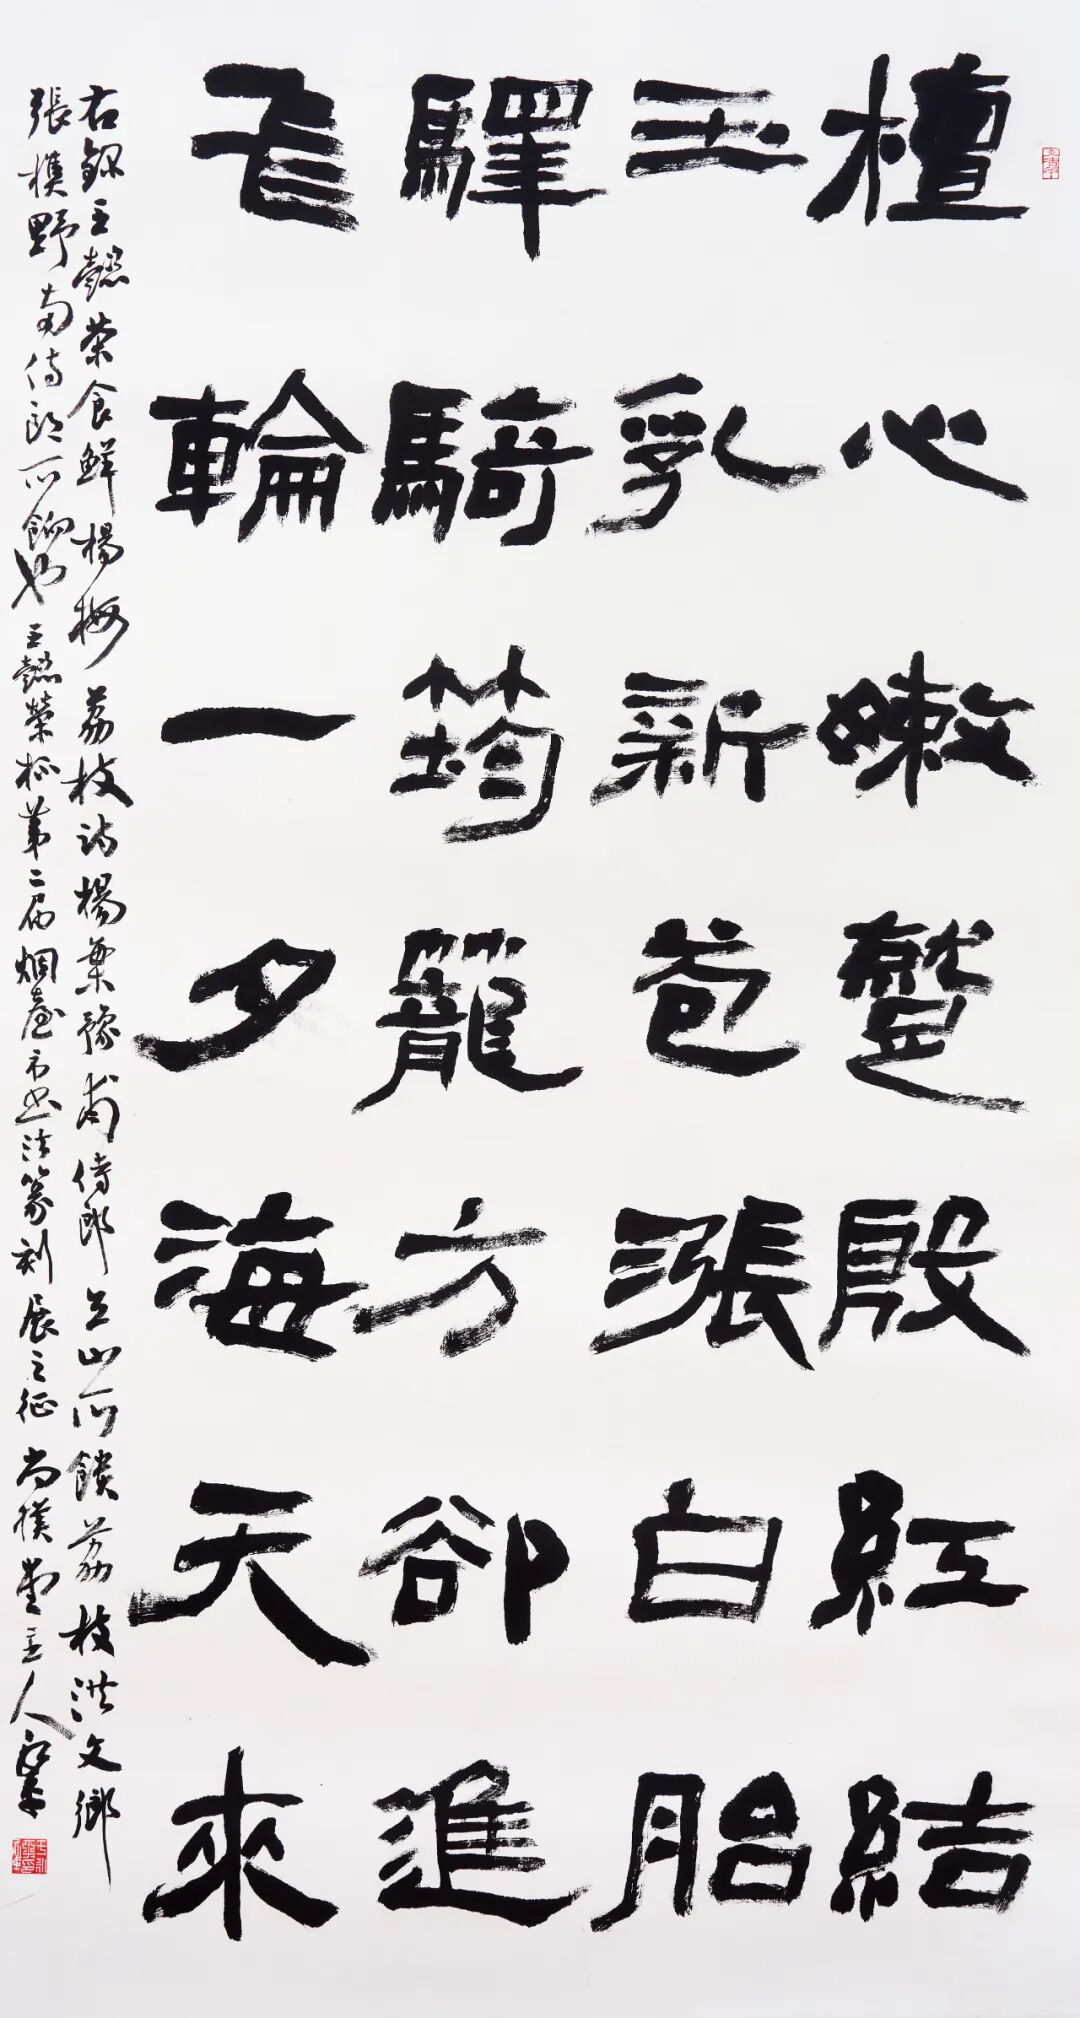 檀心嫩蹙殷紅結
玉乳新苞漲白胎
驛騎筠籠方卻進
飛輪一夕海天來
右錄王懿榮食鮮楊梅荔枝詩楊蓉豫甫侍郎立山所饋荔枝洪文卿
張樵野兩侍郎所餉也王懿榮杯第二屆烟臺市书法篆刻展之征尚樸堂主人